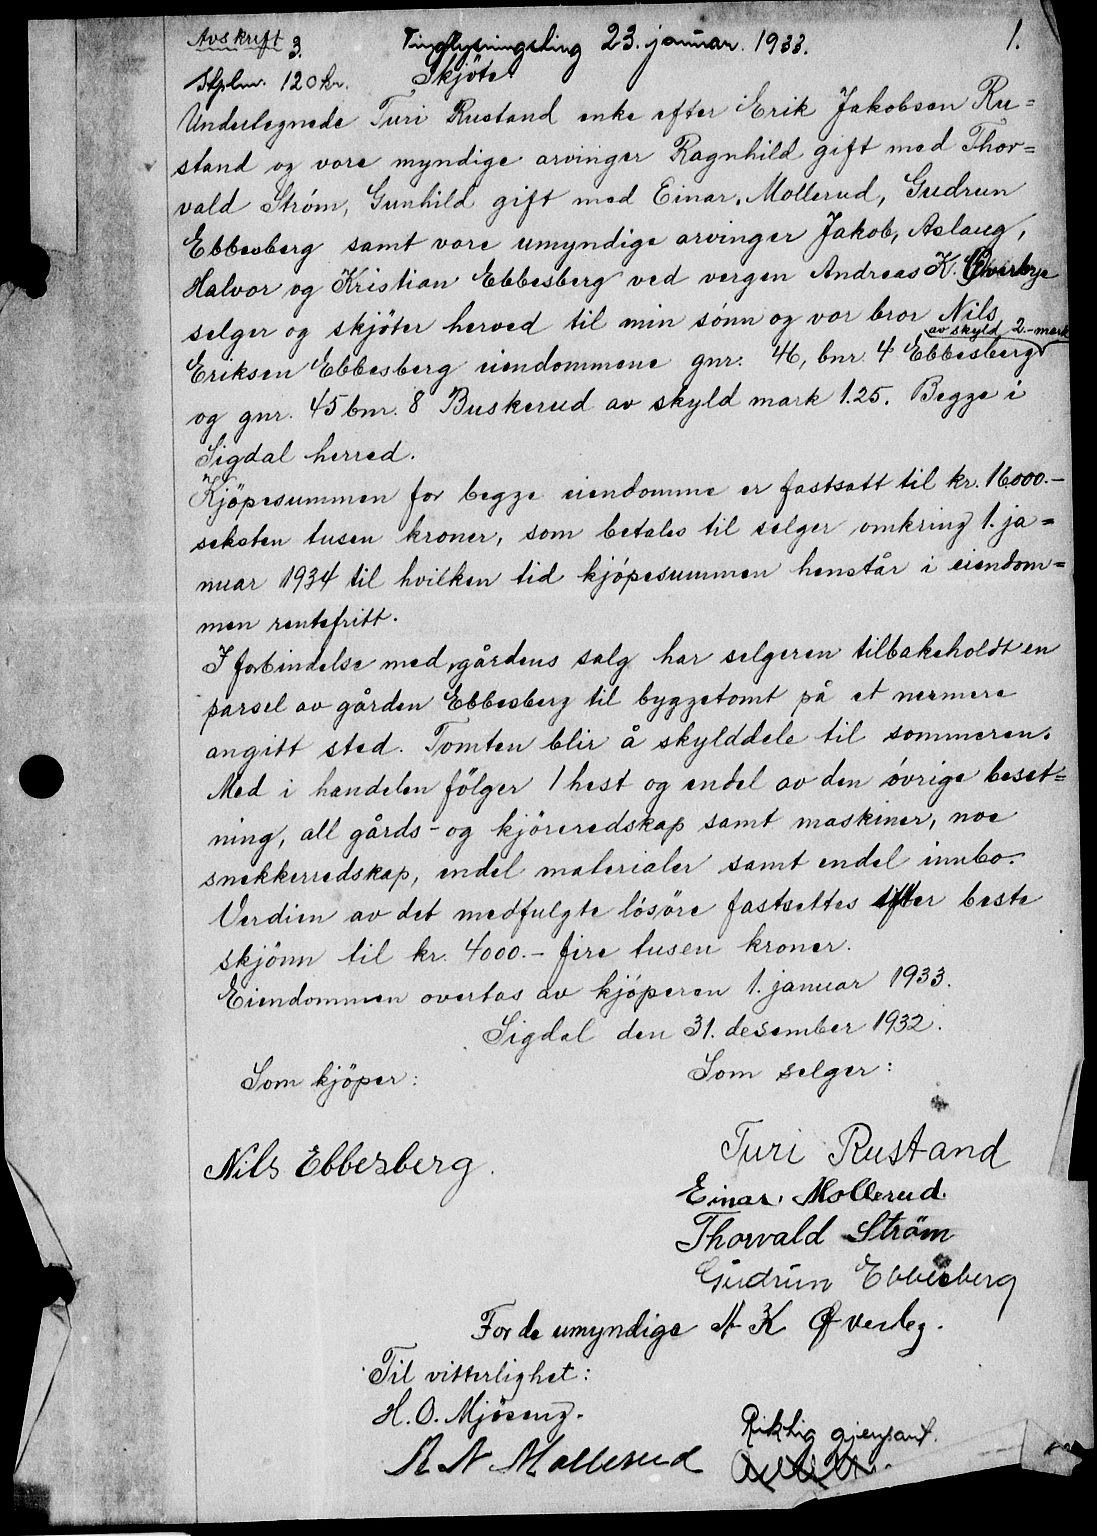 Avskrift 3. Tinglysningsting 23. januar. 1933. 1.
Stplm. 120 kr. Skjöte
Undertegnede Turi Rustand enke efter Erik Jakobsen Ru=
stand og vore myndige arvinger Ragnhild gift med Thor=
vald Strøm, Gunhild gift med Einar. Mollerud, Gudrun
Ebbesberg samt vore umyndige arvinger Jakob, Aslaug,
Halvor og Kristian Ebbesberg ved vergen Andreas K. Øverbye
selger og skjöter herved til min sönn og vor bror Nils
av skyld 2.- mark
Eriksen Ebbesberg eiendommene gnr. 46, bnr. 4 Ebbesberg
og gnr. 45 bnr. 8 Buskerud av skyld mark 1.25. Begge i
Sigdal herred.
Kjöpesummen for begge eiendomme er fastsatt til kr. 16000.-
seksten tusen kroner, som betales til selger omkring 1. ja=
nuar 1934 til hvilken tid kjöpesummen henstår i eiendom=
men rentefritt.
I forbindelse med gårdens salg har selgeren tilbakeholdt en
parsel av gården Ebbesberg til byggetomt på et nermere
angitt sted. Tomten blir å skylddele til sommeren.
Med i handelen fölger 1 hest og endel av den övrige beset=
ning, all gårds- og kjöreredskap samt maskiner, noe
snekkerredskap, endel materialer samt endel innbo.
Verdien av det medfulgte lösöre fastsettes efter beste
skjönn til kr. 4000.- fire tusen kroner.
Eiendommen overtas av kjöperen 1. januar 1933.
Sigdal den 31. desember 1932.
Som kjöper: Som selger:
Nils Ebbesberg. Turi Rustand
Einar. Mollerud.
Thorvald Ström
Gudrun Ebbesberg
For de umyndige A K Øverby.
Til vitterlighet:
H. O. Mjöseng.
A N Mollerud
Riktig gjenpart.